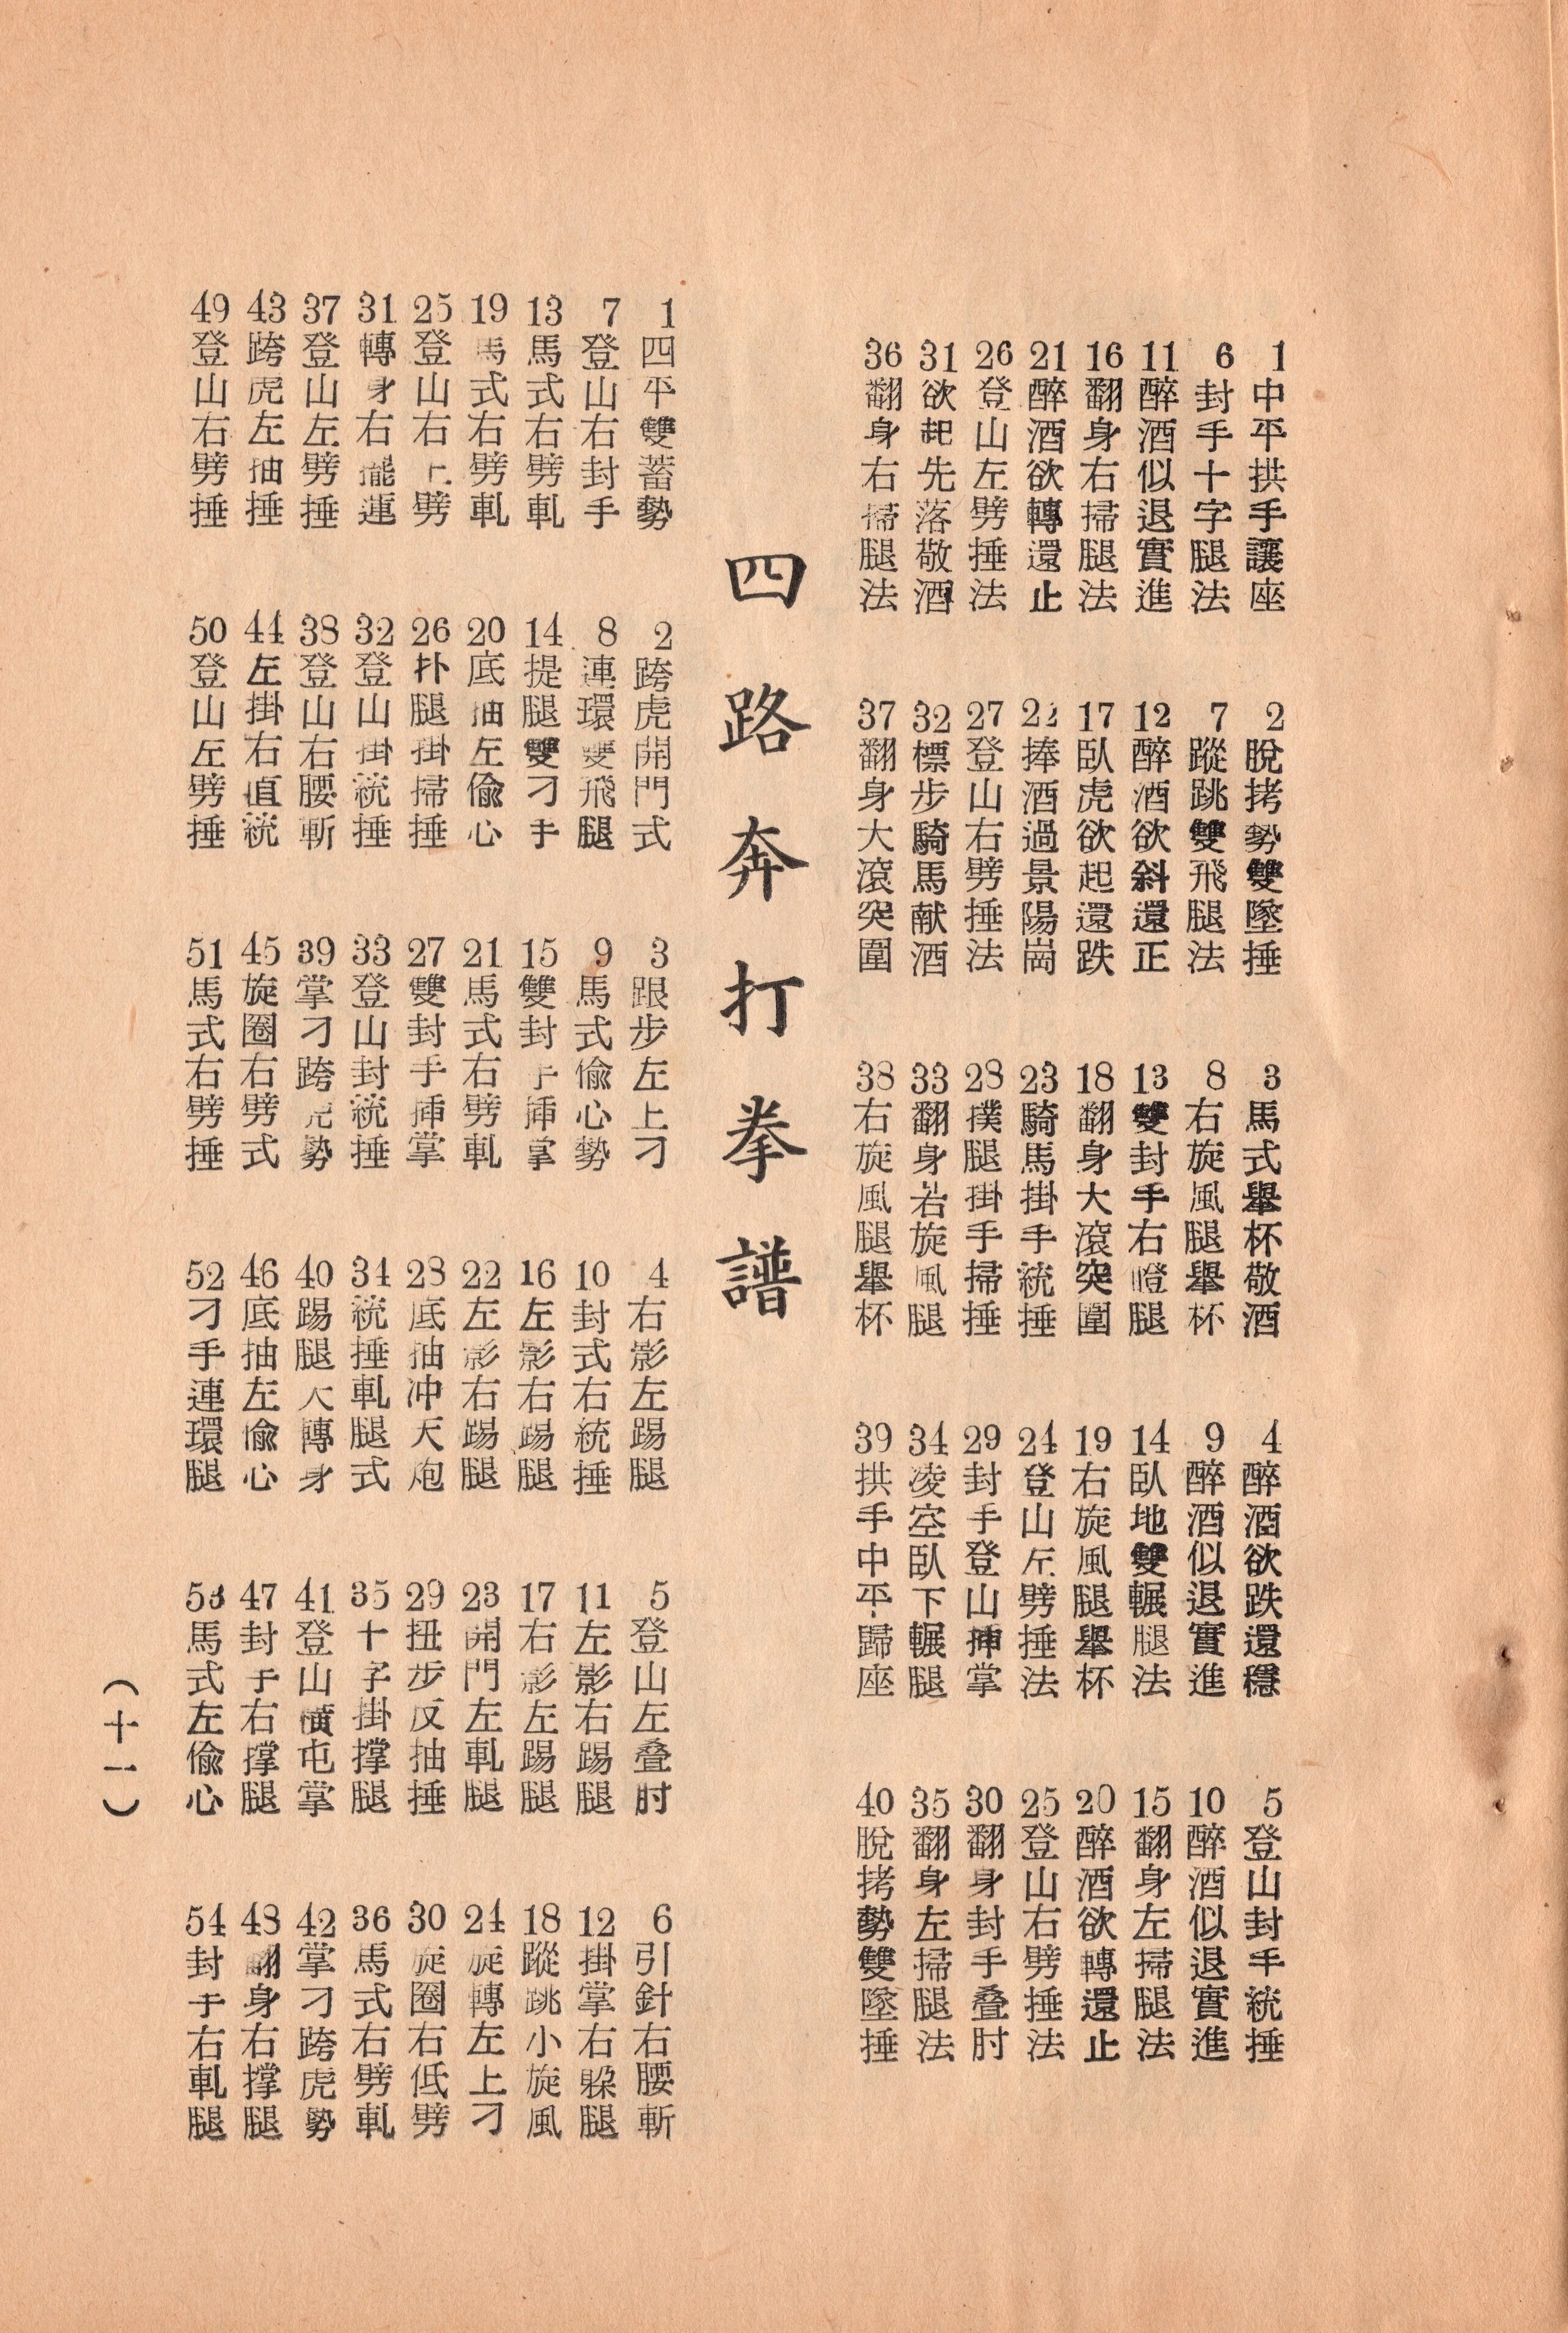 1 中平拱手讓座
2 脫拷勢雙墜捶
3 馬式舉杯敬酒
4 醉酒欲跌還穩
5 登山封手統捶
6 封手十字腿法
7 蹤跳雙飛腿法
8 右旋風腿舉杯
9 醉酒似退實進
10 醉酒似退實進
11 醉酒似退實進
12 醉酒欲斜還正
13 雙封手右瞪腿
14 臥地雙輾腿法
15 翻身左掃腿法
16 翻身右掃腿法
17 臥虎欲起還跌
18 翻身大滾突圍
19 右旋風腿舉杯
20 醉酒欲轉還止
21 醉酒欲轉還止
22 捧酒過景陽崗
23 騎馬掛手統捶
24 登山左劈捶法
25 登山右劈捶法
26 登山左劈捶法
27 登山右劈捶法
28 撲腿掛手掃捶
29 封手登山挿掌
30 翻身封手叠肘
31 欲起先落敬酒
32 標步騎馬献酒
33 翻身若旋風腿
34 凌空臥下輾腿
35 翻身左掃腿法
36 翻身右掃腿法
37 翻身大滾突圍
38 右旋風腿舉杯
39 拱手中平歸座
40 脫拷勢雙墜捶
四路奔打拳譜
1 四平雙蓄勢
2 跨虎開門式
3 跟步左上刁
4 右影左踢腿
5 登山左叠肘
6 引針右腰斬
7 登山右封手
8 連環雙飛腿
9 馬式偷心勢
10 封式右統捶
11 左影右踢腿
12 掛掌右躲腿
13 馬式右劈軋
14 提腿雙刁手
15 雙封手挿掌
16 左影右踢腿
17 右影左踢腿
18 蹤跳小旋風
19 馬式右劈軋
20 底抽左偷心
21 馬式右劈軋
22 左影右踢腿
23 開門左軋腿
24 旋轉左上刁
25 登山右上劈
26 扑腿掛掃捶
27 雙封手挿掌
28 底抽冲天炮
29 扭步反抽捶
30 旋圈右低劈
31 轉身右擺連
32 登山掛統捶
33 登山封統捶
34 統捶軋腿式
35 十字掛撑腿
36 馬式右劈軋
37 登山左劈捶
38 登山右腰斬
39 掌刁跨虎勢
40 踢腿大轉身
41 登山橫屯掌
42 掌刁跨虎勢
43 跨虎左抽捶
44 左掛右直統
45 旋圈右劈式
46 底抽左偷心
47 封手右撑腿
48 翻身右撑腿
49 登山右劈捶
50 登山左劈捶
51 馬式右劈捶
52 刁手連環腿
53 馬式左偷心
54 封手右軋腿
（十一）